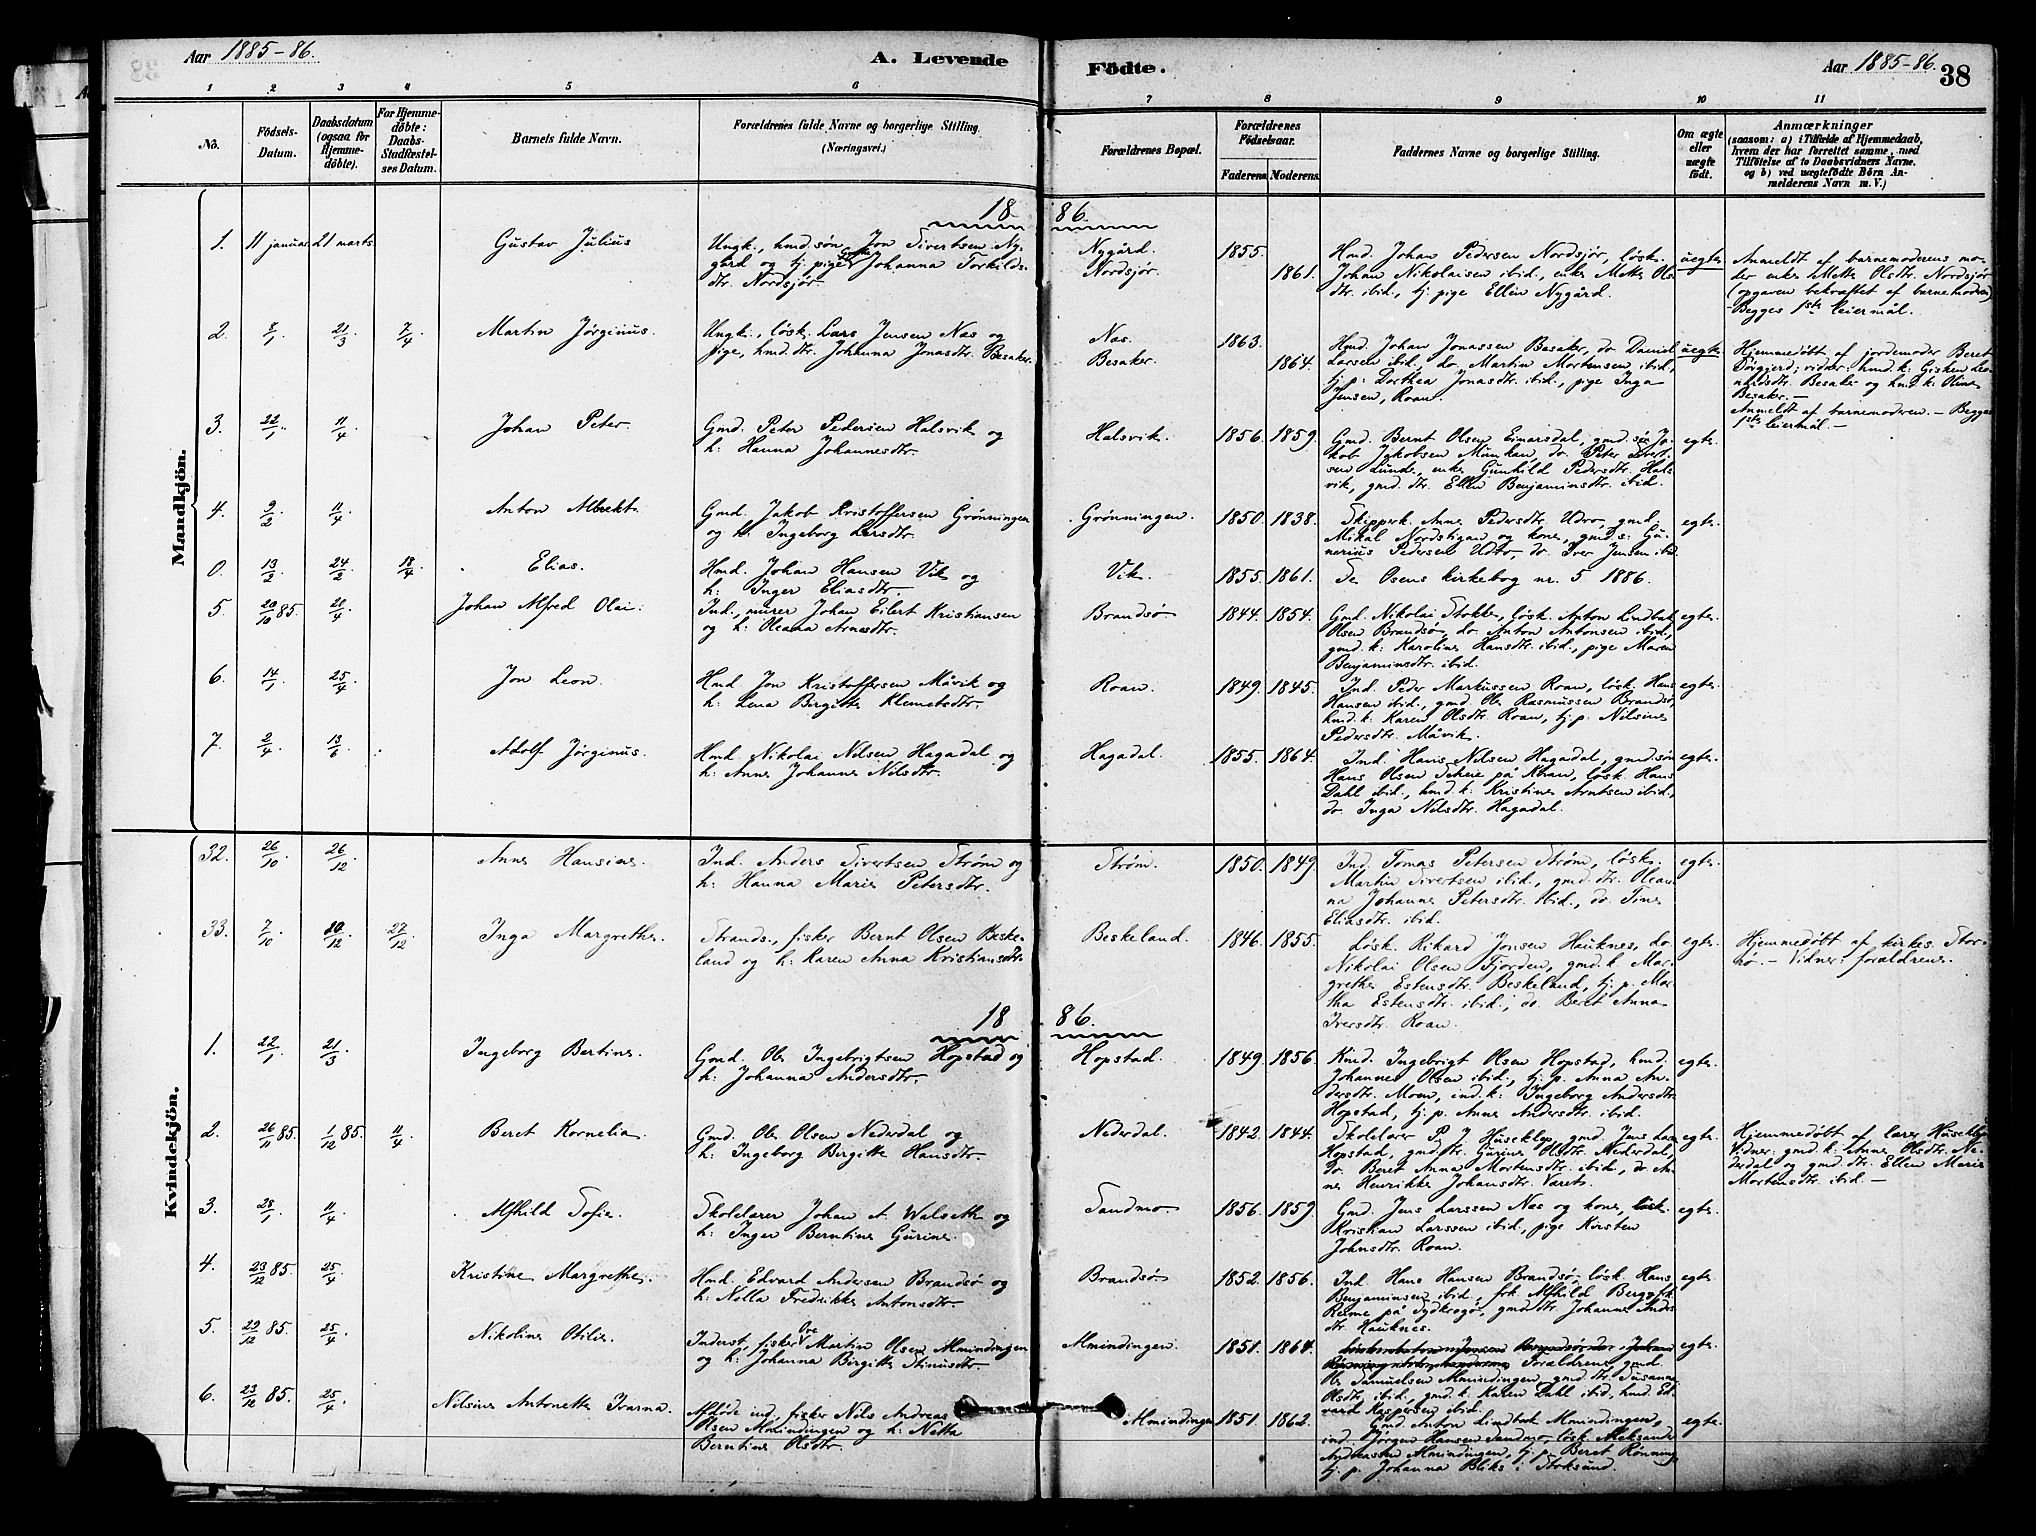 Aar 1885-86.
A. Levende
Födte.
Aar 1885-86.
38
1 2 3 4 5 6 7 8 9 10 11
No.
Födsels-Datum.
Daabsdatum (ogsaa for Hjemme-döbte).
For Hjemme-döbte: Daabs-Stadfæstel-ses Datum.
Barnets fulde Navn.
Forældrenes fulde Navne og borgerlige Stilling
(Næringsvei.)
Forældrenes Bopæl.
Forældrenes Födselsaar.
Faderens. Moderens.
Faddernes Navne og borgerlige Stilling.
Om ægte eller uægte født.
Anmærkninger
(saasom: a) i Tilfælde af Hjemmedaab,
hvem der har forrettet samme, med
Tilföielse af to Daabsvidners Navne.
og b) ved uægtefödte Börn An-
melderens Navn m. V.)
Mandkjön.
18 86.
1. 11 januar 21 marts Gustav Julius
Ungk., hmd.søn Jon Sivertsen Ny-
gård og tj. pige Johanna Torkilds-
dtr. Nordsjør.
Nygård.
Nordsjør.
1855. 1861.
Hmd. Johan Pedersen Nordsjør, løsk.
Johan Nikolaisen ibid., enke Mette Ols-
dtr. ibid., tj. pige Ellen Nygård.
uegte.
Anmeldt af barnemoderens mo-
der enke Mette Olsdtr. Nordsjør
(opgaven bekræftet af barnemoderen)
Begges 1ste leiermål.
2. 8/1 21/3 7/4 Martin Jørginus.
Ungk., løsk. Lars Jensen Næs og
pige, hmd.dtr. Johanna Jonasdtr. Besaker.
Næs.
Besaker.
1863. 1864.
Hmd. Johan Jonassen Besaker, do Daniel
Larsen ibid., do Martin Mortensen ibid.,
tj. p. Dorthea Jonasdtr. ibid., pige Inga
Jensen, Roan.
uegte.
Hjemmedøbt af jordemoder Beret
Sørgjerd; vidner: hmd. k: Gisken Leo-
nhardsdtr. Besaker og hmd. k: Oline
Besaker. —
Anmeldt af barnemoderen. — Begges
1ste leiermål. —
3. 22/1 11/4 Johan Peter.
Gmd. Peter Pedersen Halsvik og
h: Hanna Johannesdtr.
Halsvik.
1856. 1859.
Gmd. Bernt Olsen Einarsdal, gmd. søn Ja-
kob Jakobsen Munkan, do. Peter Iver-
sen Lunde, enke Gunhild Pedersdtr. Hals-
vik, gmd. dtr. Ellen Benjaminsdtr. ibid.
egte.
4. 9/2 11/4 Anton Albrekt.
Gmd. Jakob Kristoffersen Grønningen
og h: Ingeborg Larsdtr.
Grønningen.
1850. 1838.
Skipperk. Anne Pedersdtr. Udro, gmd.
Mikal Nordstigan og kone, gmd. s: Gu-
nerius Pedersen Udro, do. Iver Jensen ibid.
egte.
0. 13/2 24/2 18/4 Elias.
Hmd. Johan Hansen Vik og
h: Inger Eliasdtr.
Vik.
1855. 1861.
Se Osens kirkebog nr. 5 1886.
5. 20/10 85. 21/4 Johan Alfred Olai.
Ind., murer Johan Eilert Kristiansen
og h: Oleana Arnesdtr.
Brandsø
1844. 1854.
Gmd. Nikolai Stokke, løsk. Anton Lindbak
Olsen Brandsø, do Anton Antonsen ibid.,
gmd. k: Karoline Hansdtr. ibid., pige Maren
Benjaminsdtr. ibid.
egte.
6. 14/1 25/4 Jon Leon.
Hmd Jon Kristoffersen Måvik og
h: Lena Birgitte Klemetsdtr.
Roan.
1849. 1845.
Ind. Peder Markussen Roan, løsk. Hans
Hansen ibid., gmd Ole Rasmussen Brandsø,
hmd. k: Karen Olsdtr. Roan, tj. p. Nilsine
Pedersdtr. Måvik.
egte.
7. 2/4 13/6 Adolf Jørginus.
Hmd Nikolai Nilsen Hagadal og
h: Anne Johanne Nilsdtr.
Hagadal.
1855. 1864.
Ind. Hans Nilsen Hagadal, gmd. søn
Hans Olsen Scheie på Kiran, løsk. Hans
Dahl ibid., hmd. k: Kristine Arntsen ibid.,
do Inga Nilsdtr. Hagadal.
egte.
Kvindekjön.
32. 26/10 26/12 Anne Hansine.
Ind. Anders Sivertsen Strøm og
h: Hanna Marie Petersdtr.
Strøm.
1850. 1849.
Ind. Tomas Petersen Strøm, løsk.
Martin Sivertsen ibid., gmd. dtr. Olean-
na Johanne Petersdtr. ibid., do Tine
Eliasdtr. ibid.
egte.
33. 7/10 20/12 27/12 Inga Margrethe.
Strands., fisker Bernt Olsen Beske-
land og h: Karen Anna Kristiansdtr.
Beskeland.
1846. 1855.
Løsk. Rikard Jonsen Hauknes, do
Nikolai Olsen Fjorden, gmd. k Mar-
grethe Estensdtr. Beskeland, tj. p. Mar-
tha Estensdtr. ibid., do. Beret Anna
Iversdtr. Roan.
egte.
Hjemmedøbt af kirkes. Stor-
ø. — Vidner: forældrene.
18 86.
1. 22/1 21/3 Ingeborg Bertine.
Gmd. Ole Ingebrigtsen Hopstad og
h: Johanna Andersdtr.
Hopstad.
1849. 1856.
Kmd. Ingebrigt Olsen Hopstad, hmd.
Johannes Olsen ibid., tj. p. Anna An-
dersdtr. Moen, ind. k: Ingeborg Andersdtr.
Hopstad, tj. p. Anne Andersdtr. ibid.
egte.
2. 26/11 85. 1/12 85. 11/4 Beret Kornelia.
Gmd. Ole Olsen Nederdal og
h: Ingeborg Birgitte Hansdtr.
Nederdal.
1842. 1844.
Skolelærer P. J Huseklep, gmd. Jens Lar-
Hopstad, gmd. dtr. Gurine Olsdtr. Nederdal,
do. Beret Anna Mortensdtr. ibid., do An-
ne Henrikke Johansdtr. Vareto.
egte.
Hjemmedøbt af lærer Huseklep
Vidner: gmd. k: Anne Olsdtr. Ne-
derdal og gmd. dtr. Ellen Marie
Mortensdtr. ibid. —
3. 28/1 11/4 Alfhild Sofie.
Skolelærer Johan A. Walseth og
h: Inger Berntine Gurine.
Sandmo
1856. 1859.
Gmd. Jens Larssen Næs og kone, løsk.
Kristian Larssen ibid., pige Kirsten
Johnsdtr. Roan.
egte.
4. 23/12 85. 25/4 Kristine Margrethe.
Hmd. Edvard Andersen Brandsø og
h: Nella Fredrikke Antonsdtr.
Brandsø
1852. 1856.
Ind. Hans Hansen Brandsø, løsk. Hans
Benjaminsen ibid., frk Alfhild Berg, frk
Reime på Sydkrogø, gmd. dtr. Johanne Ands-
dtr. Hauknes.
egte.
5. 29/12 85. 25/4 Nikoline Otilie.
Inderst, fisker Ove Martin Olsen Almindingen
og h: Johanna Birgitte Stinusdtr.
Almindingen.
1851. 1864.
Forældrene, gmd.
Ole Samuelsen Almindingen, gmd. dtr. Susanna
Olsdtr. ibid., gmd. k: Karen Dahl ibid., hmd. Ed-
vard Kaspersen ibid.
egte.
6. 23/12 85. 25/4 Nilsine Antonette Ivarna.
Afdøde ind., fisker Nils Andreas
Olsen Almindingen og h: Netta
Berntine Olsdtr.
Almindingen
1851. 1862.
Gmd. Anton Lindbak Almindingen,
ind. Jørgen Hansen Sandmo, løsk. Aleksander
Andreassen Almindingen, tj. p. Beret Rønning
tj. p. Johanna Bliks i Stoksund.
egte.